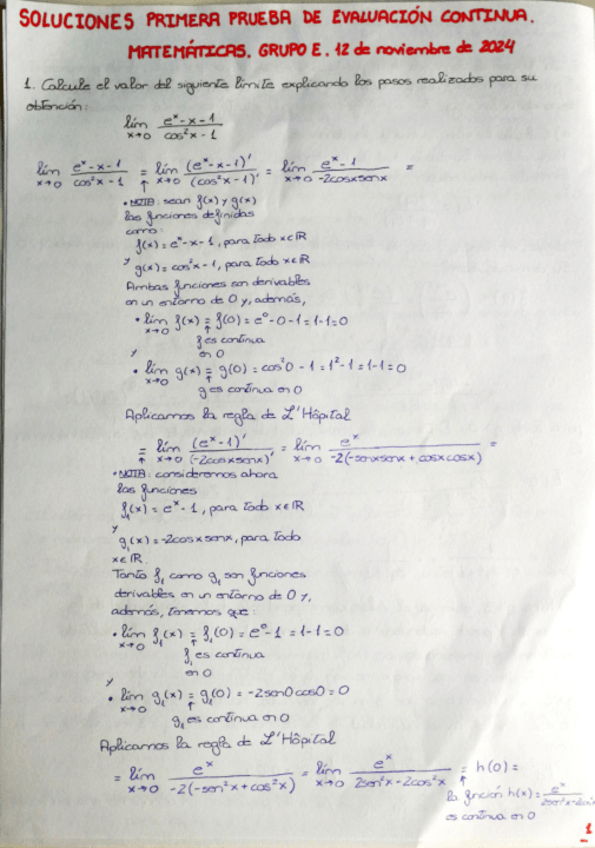 SOLUCIONES PRIMERA PRUEBA DE EVALUACIÓN CONTINUA.
MATEMÁTICAS. GRUPO E. 12 de noviembre de 2024
1. Calcule el valor del siguiente límite explicando los pasos realizados para su
obtención:
lím x→0 (e^x - x - 1)/(cos²x - 1)
lím x→0 (e^x - x - 1)/(cos²x - 1) = lím x→0 (e^x - x - 1)'/(cos²x - 1)' = lím x→0 (e^x - 1)/(-2cosxsenx) =
• NOTA: sean f(x) y g(x)
las funciones definidas
como:
f(x) = e^x - x - 1, para todo x∈ℝ
y
g(x) = cos²x - 1, para todo x∈ℝ
Ambas funciones son derivables
en un entorno de 0 y, además,
• lím x→0 f(x) = f(0) = e^0 - 0 - 1 = 1 - 1 = 0
↑
f es continua
en 0
y
• lím x→0 g(x) = g(0) = cos²0 - 1 = 1² - 1 = 1 - 1 = 0
↑
g es continua en 0
Aplicamos la regla de L'Hôpital
= lím x→0 (e^x - 1)'/(-2cosxsenx)' = lím x→0 e^x/(-2(-senxsenx + cosxcosx)) =
↑
• NOTA: consideremos ahora
las funciones
f₁(x) = e^x - 1, para todo x∈ℝ
y
g₁(x) = -2cosxsenx, para todo
x∈ℝ.
Tanto f₁ como g₁ son funciones
derivables en un entorno de 0 y,
además, tenemos que:
• lím x→0 f₁(x) = f₁(0) = e^0 - 1 = 1 - 1 = 0
↑
f₁ es continua
en 0
y
• lím x→0 g₁(x) = g₁(0) = -2sen0cos0 = 0
↑
g₁ es continua en 0
Aplicamos la regla de L'Hôpital
= lím x→0 e^x/(-2(-sen²x + cos²x)) = lím x→0 e^x/(2sen²x - 2cos²x) = h(0) =
↑
la función h(x) = e^x/(2sen²x - 2cos²x
es continua en 0
1